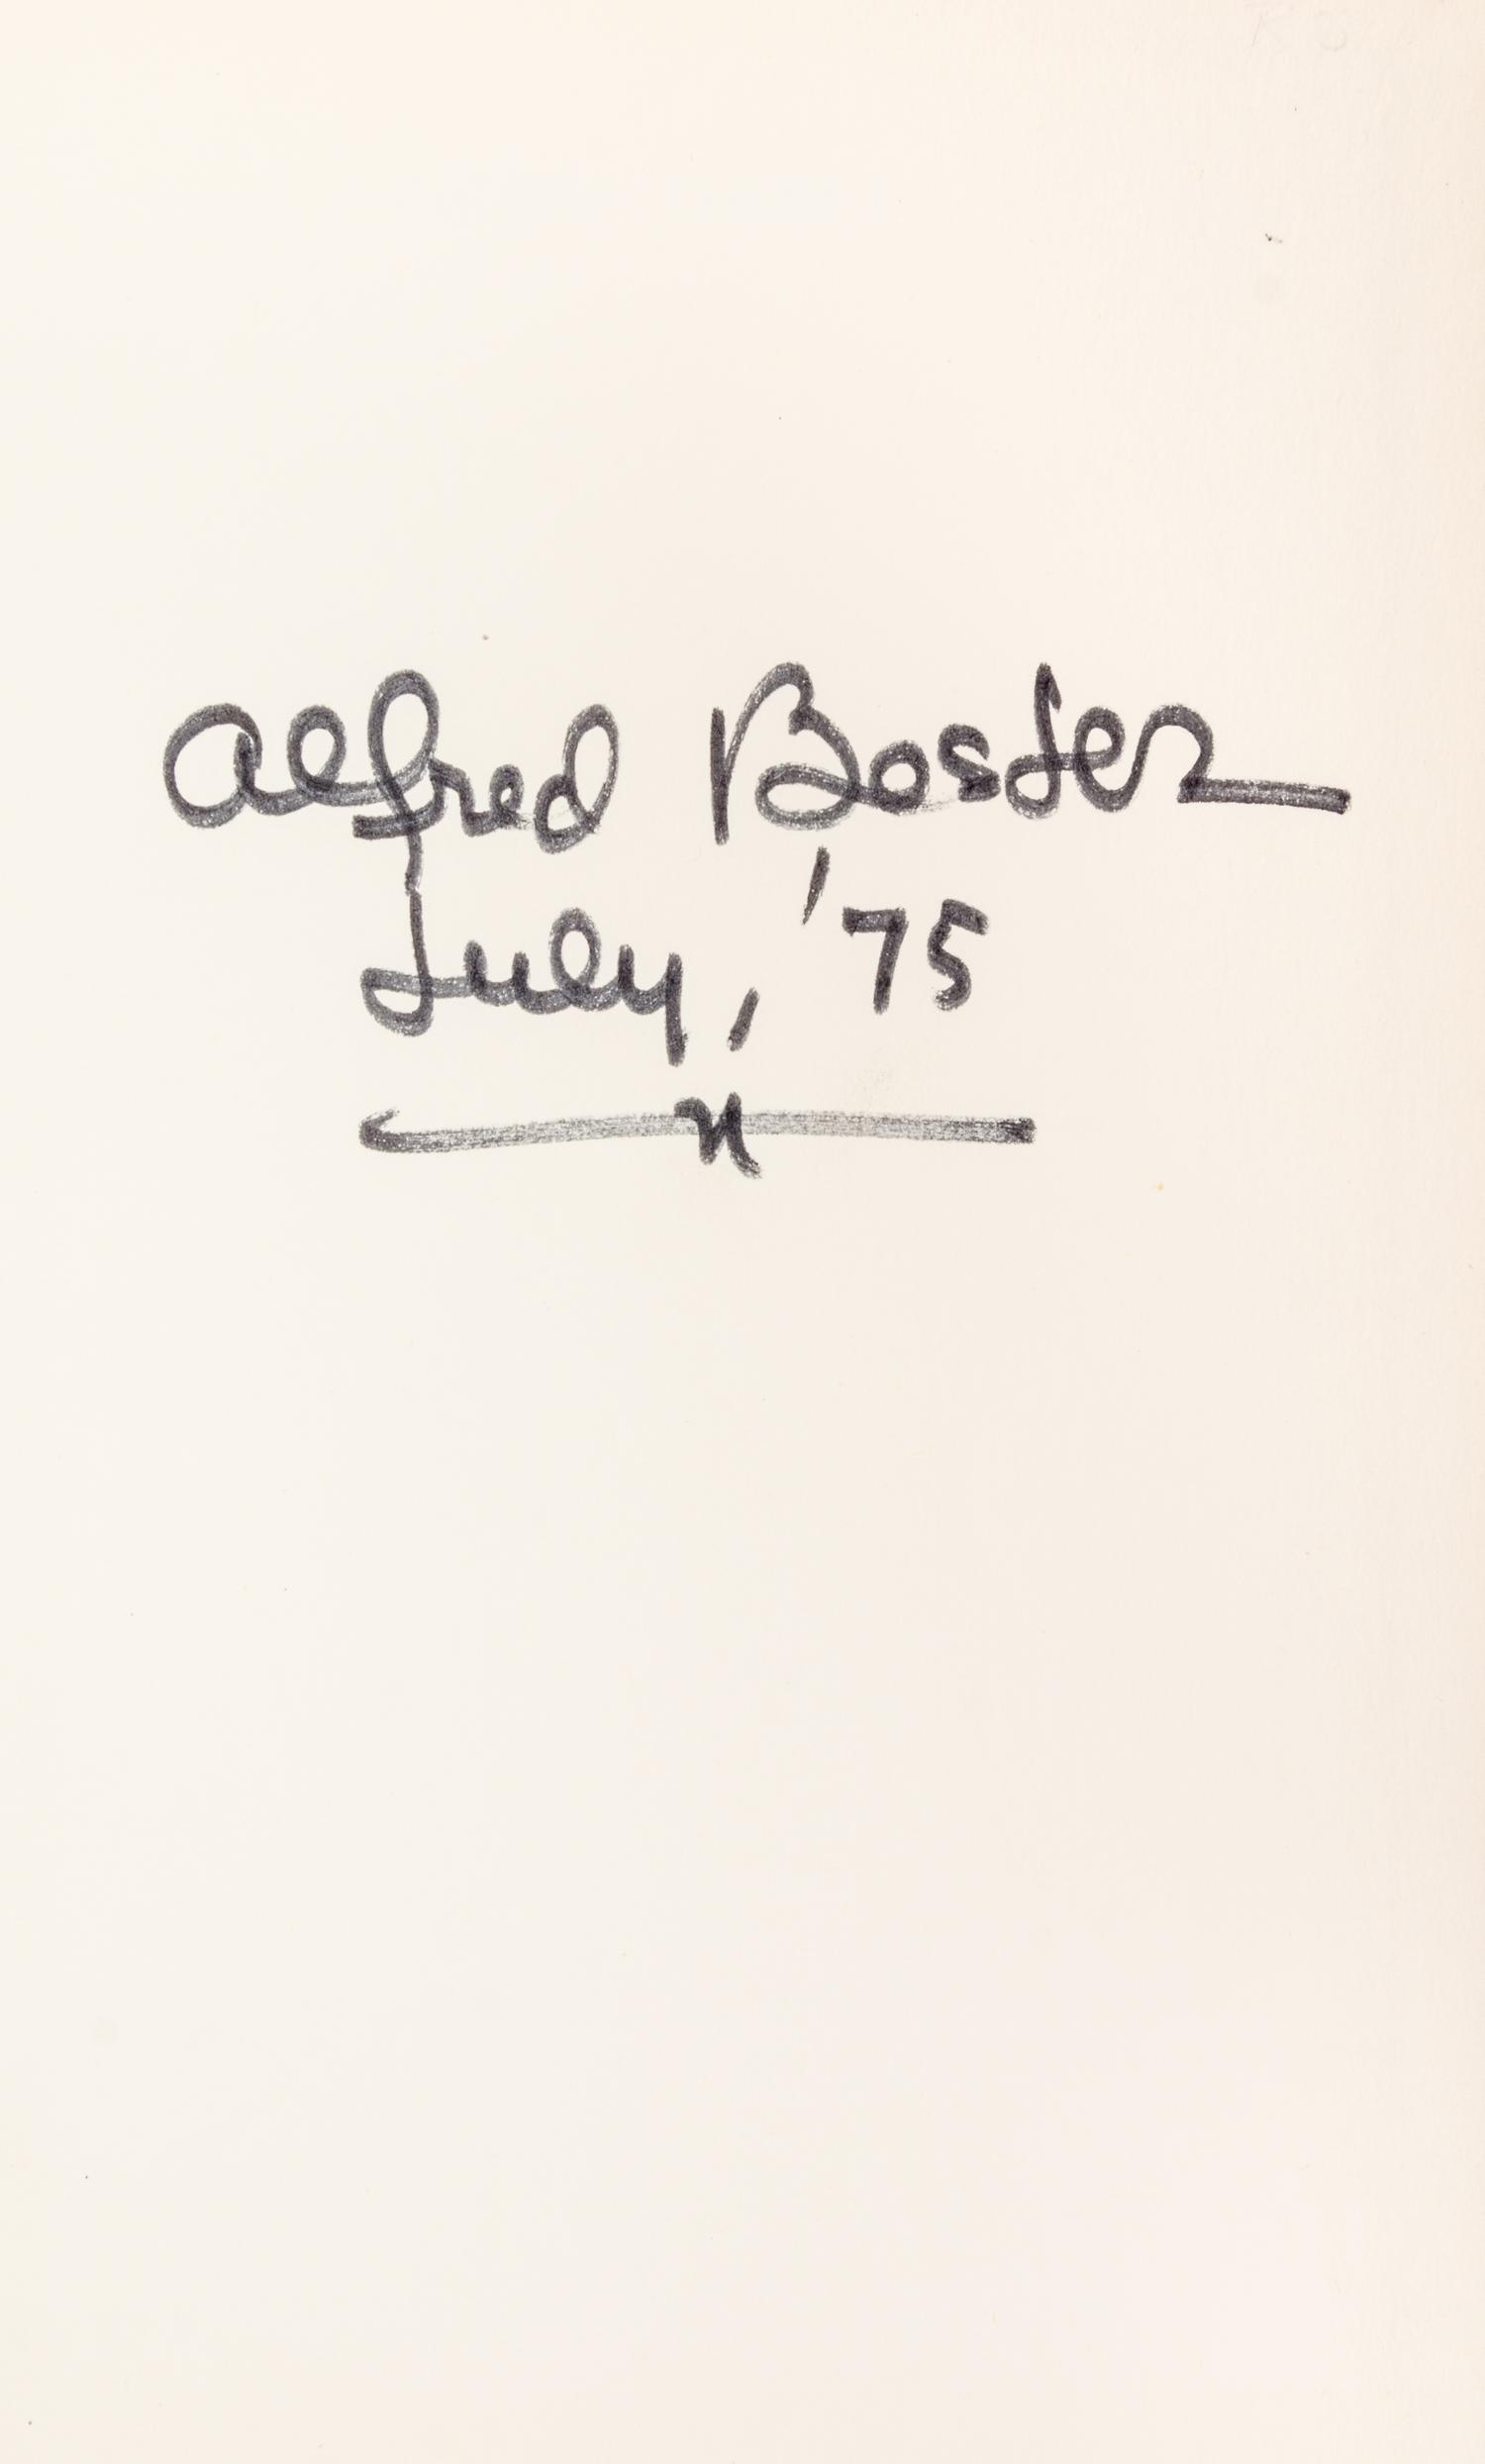 Alfred Bester
July, '75